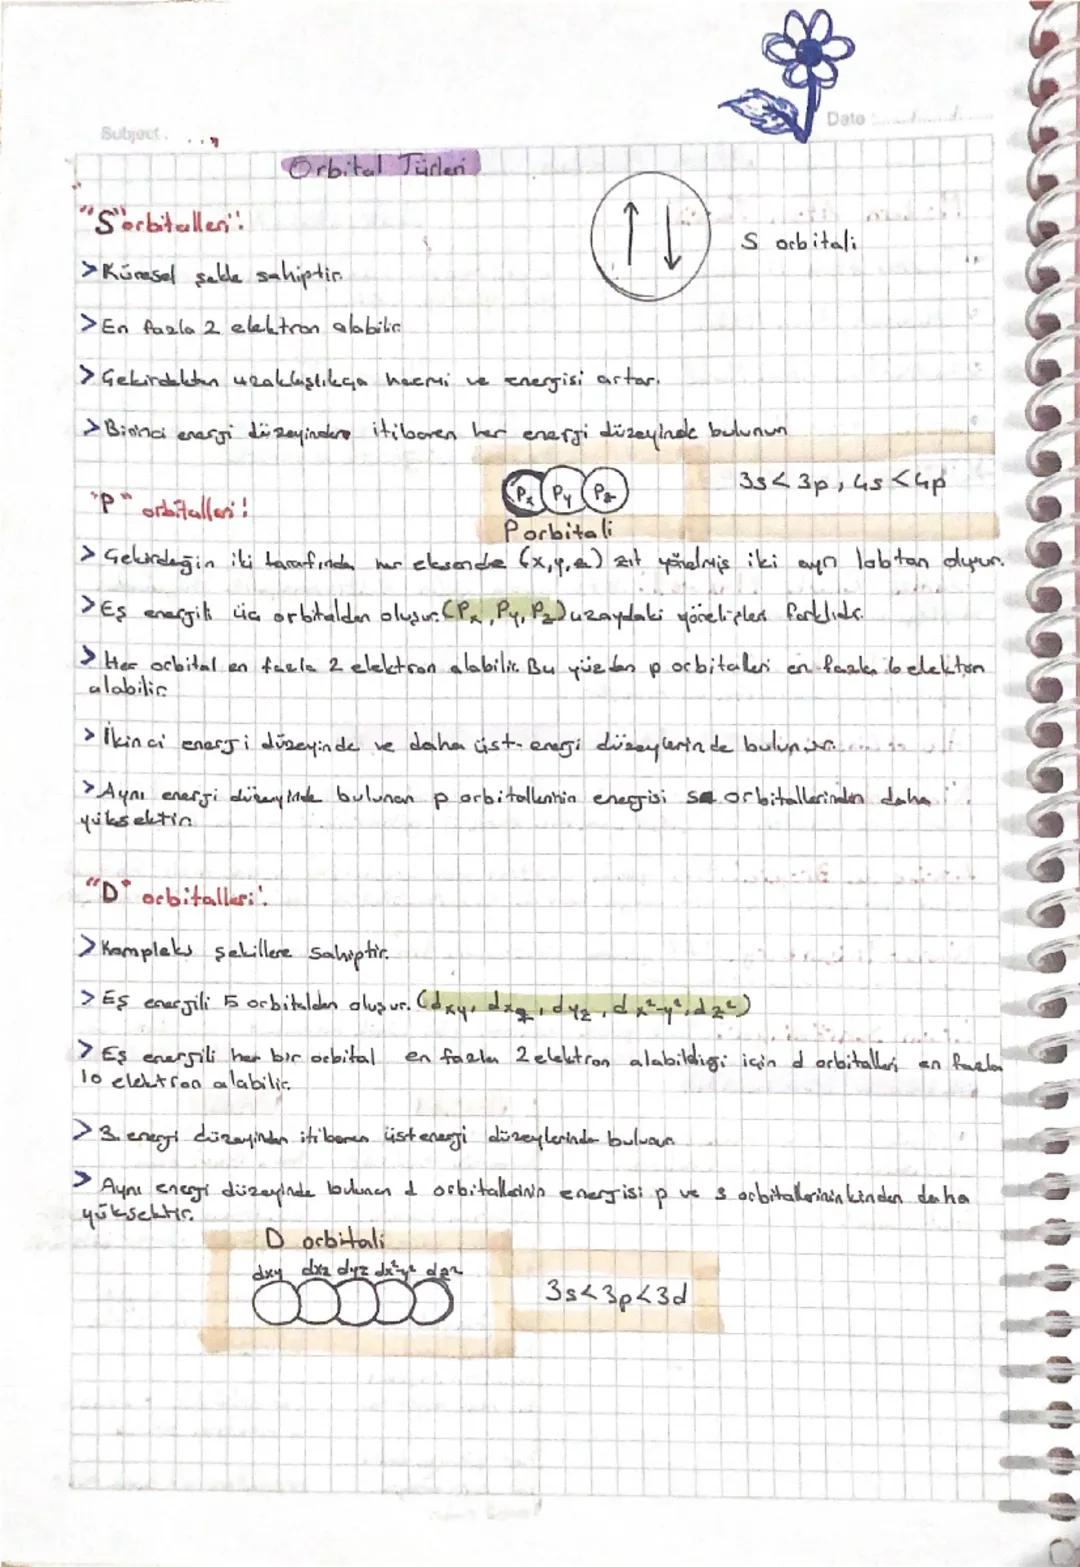 Subject.
Date
Orbital Türleri
"S" orbitalleri:
S orbitali
> Küresel şekle sahiptir.
> En fazla 2 elektron alabilir.
> Çekirdekten uzaklaştıkça hacmi ve enerjisi artar.
> Birinci enerji düzeyinden itibaren her enerji düzeyinde bulunur
Px Py Pz
3s<3p, 4s<4p
P orbitali
"P" orbitalleri:
> Çekirdeğin iki tarafında her eksende (x,y,z) zıt yönelmiş iki ayrı lobtan oluşur.
> Eş enerjili üç orbitalden oluşur. (Px, Py, Pz) uzaydaki yönelişleri farklıdır.
> Her orbital en fazla 2 elektron alabilir. Bu yüzden p orbitalleri en fazla 6 elektron
alabilir.
> İkinci enerji düzeyinde ve daha üst enerji düzeylerinde bulunur.
> Aynı enerji düzeyinde bulunan p orbitallerinin enerjisi s orbitallerinden daha
yüksektir.
"D" orbitalleri:
> Kompleks şekillere sahiptir.
> Eş enerjili 5 orbitalden oluşur. (dxy, dxz, dyz, dx²-y², dz²)
> Eş enerjili her bir orbital en fazla 2 elektron alabildiği için d orbitalleri en fazla
10 elektron alabilir.
> 3. enerji düzeyinden itibaren üst enerji düzeylerinde bulunur
> Aynı enerji düzeyinde bulunan d orbitallerinin enerjisi p ve s orbitallerininkinden daha
yüksektir.
D orbitali
dxy dxz dyz dx²-y² dz²
3s<3p<3d